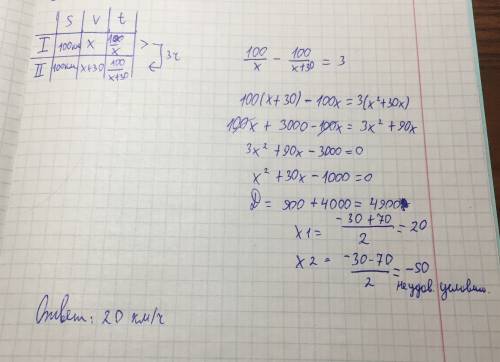 S V t
I 100км x 100/x > 3ч
II 100км x+30 100/(x+30)
100/x - 100/(x+30) = 3
100(x+30) - 100x = 3(x²+30x)
100x + 3000 - 100x = 3x² + 90x
3x² + 90x - 3000 = 0
x² + 30x - 1000 = 0
D = 900 + 4000 = 4900
x1 = (-30+70)/2 = 20
x2 = (-30-70)/2 = -50
неудов. условию.
Ответ: 20 км/ч